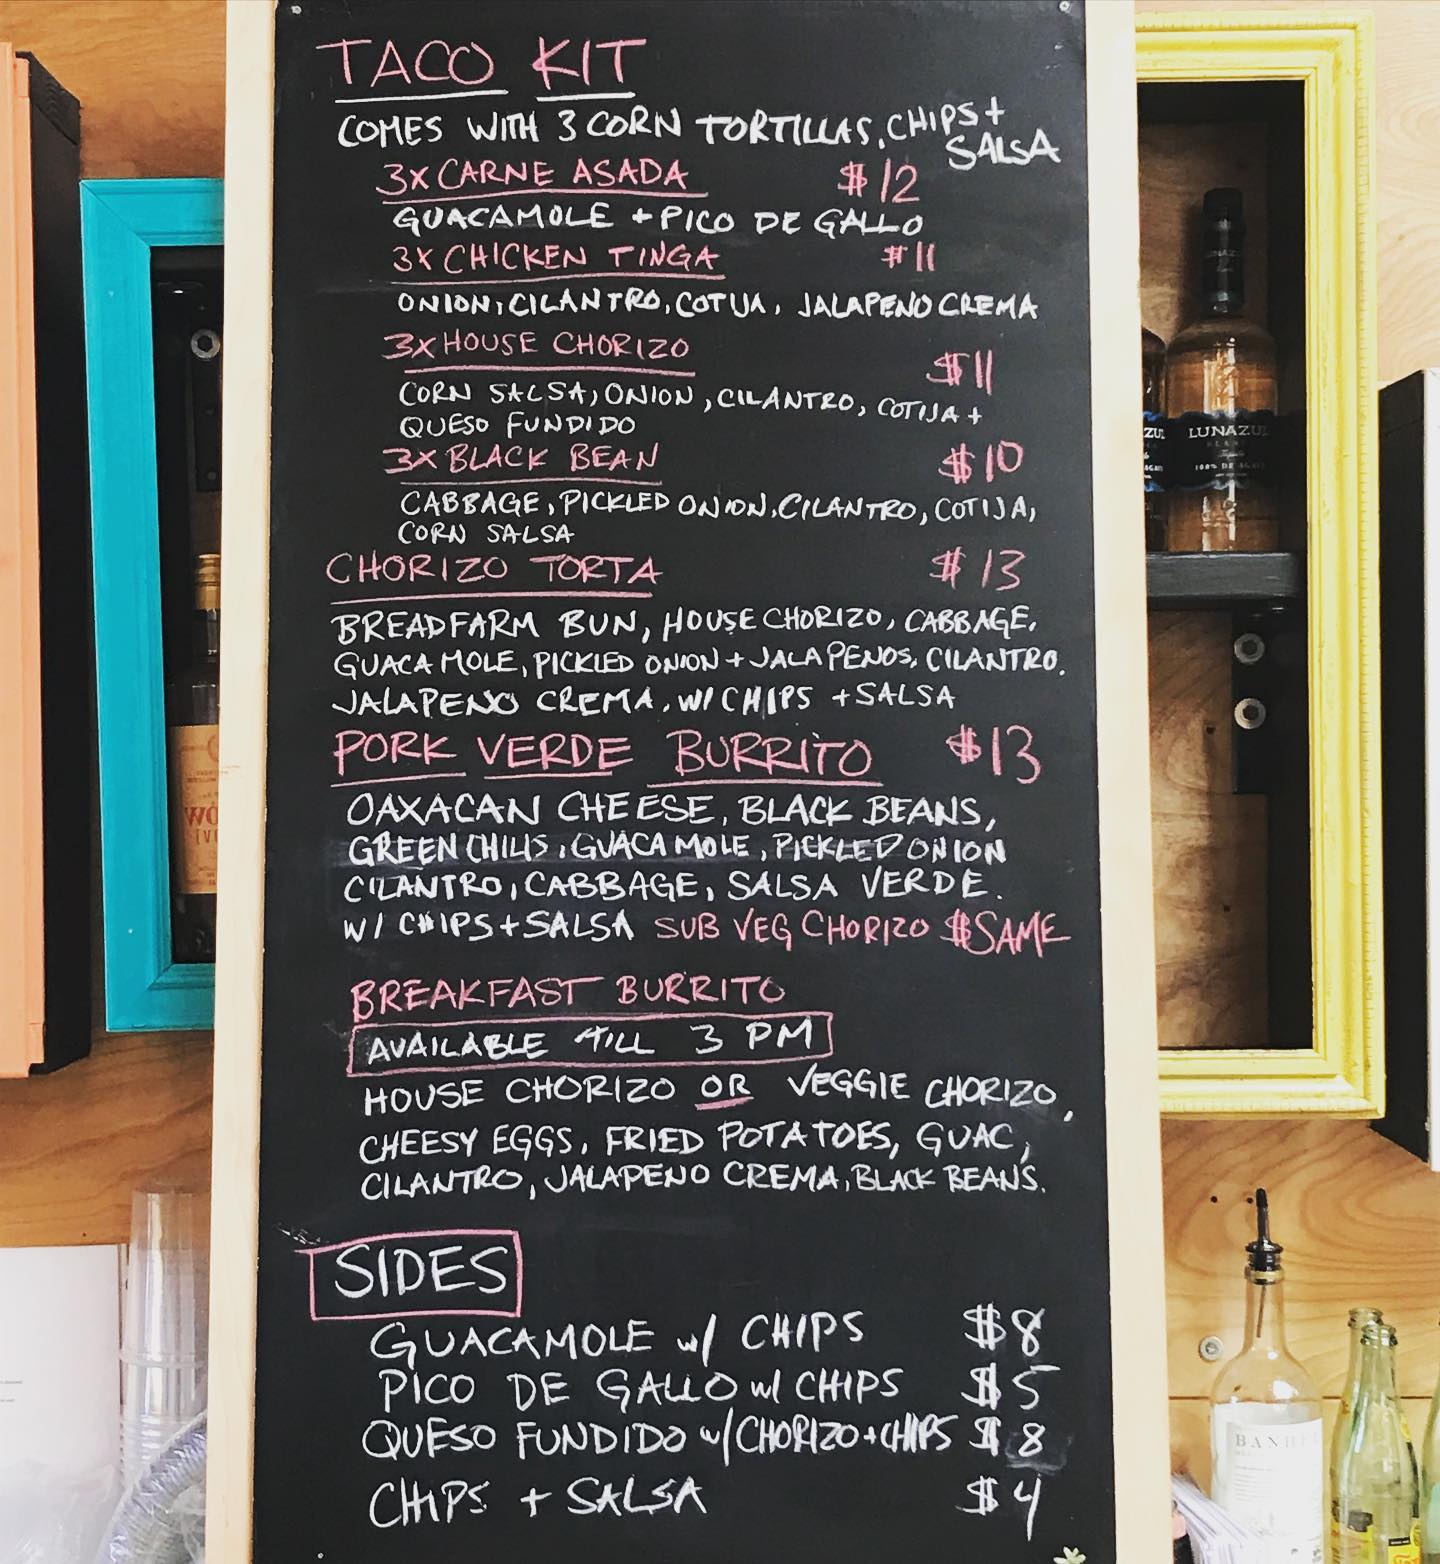 TACO KIT
COMES WITH 3 CORN TORTILLAS, CHIPS +
SALSA
3X CARNE ASADA $12
GUACAMOLE + PICO DE GALLO
3X CHICKEN TINGA $11
ONION, CILANTRO, COTIJA, JALAPENO CREMA
3X HOUSE CHORIZO $11
CORN SALSA, ONION, CILANTRO, COTIJA +
QUESO FUNDIDO
3X BLACK BEAN $10
CABBAGE, PICKLED ONION, CILANTRO, COTIJA,
CORN SALSA
CHORIZO TORTA $13
BREADFARM BUN, HOUSE CHORIZO, CABBAGE,
GUACAMOLE, PICKLED ONION + JALAPENOS, CILANTRO,
JALAPENO CREMA, W/ CHIPS + SALSA
PORK VERDE BURRITO $13
OAXACAN CHEESE, BLACK BEANS,
GREEN CHILIS, GUACAMOLE, PICKLED ONION
CILANTRO, CABBAGE, SALSA VERDE.
W/ CHIPS + SALSA SUB VEG CHORIZO $SAME
BREAKFAST BURRITO
AVAILABLE 'TILL 3 PM
HOUSE CHORIZO OR VEGGIE CHORIZO,
CHEESY EGGS, FRIED POTATOES, GUAC,
CILANTRO, JALAPENO CREMA, BLACK BEANS.
SIDES
GUACAMOLE w/ CHIPS $8
PICO DE GALLO w/ CHIPS $5
QUESO FUNDIDO w/ CHORIZO + CHIPS $8
CHIPS + SALSA $4
LUNAZUL
BLANCO